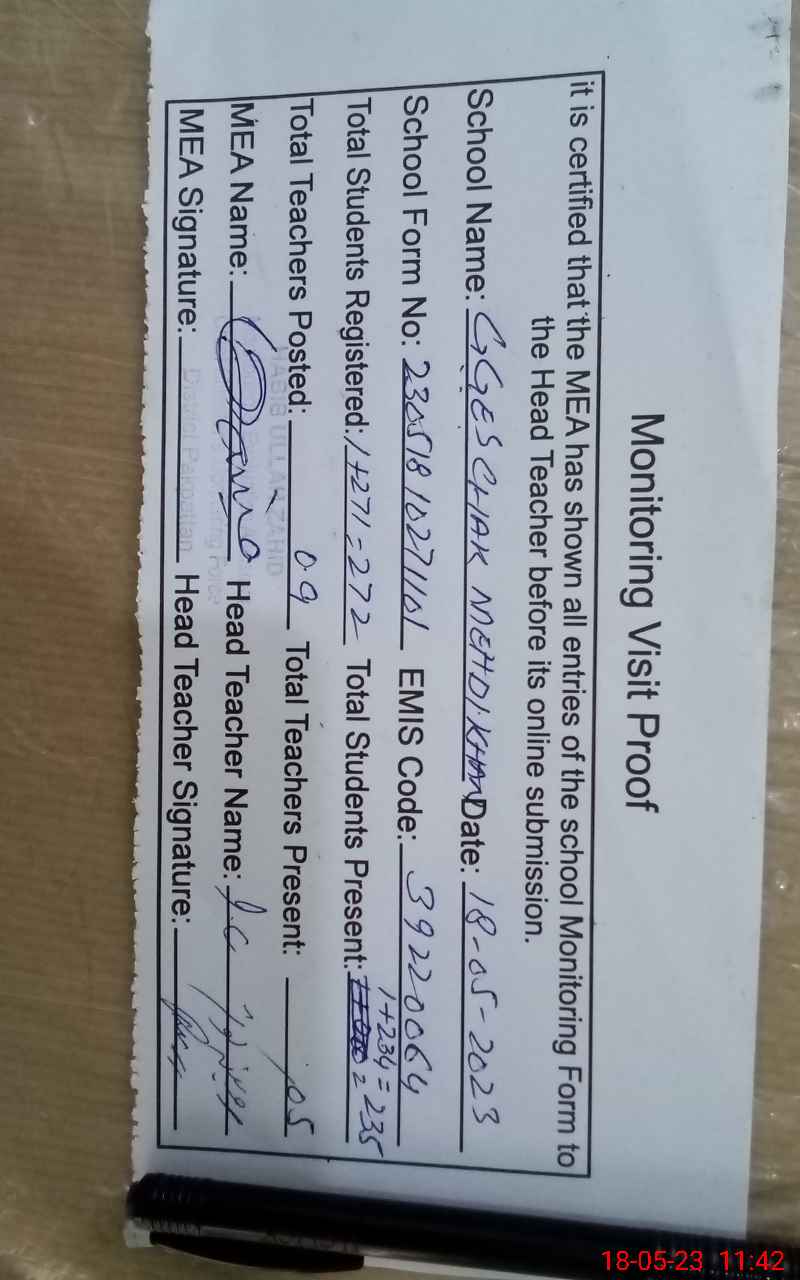 Monitoring Visit Proof
it is certified that the MEA has shown all entries of the school Monitoring Form to
the Head Teacher before its online submission.
School Name: GGES CHAK MEHDI KHAN Date: 18-05-2023
School Form No: 23051810271101 EMIS Code: 39220064
Total Students Registered: 1+271=272 Total Students Present: 1+234=235
Total Teachers Posted: 09 Total Teachers Present: 05
MEA Name: Head Teacher Name:
MEA Signature: Head Teacher Signature:
HABIB ULLAH ZAHID
District Pakpattan
18-05-23 11:42